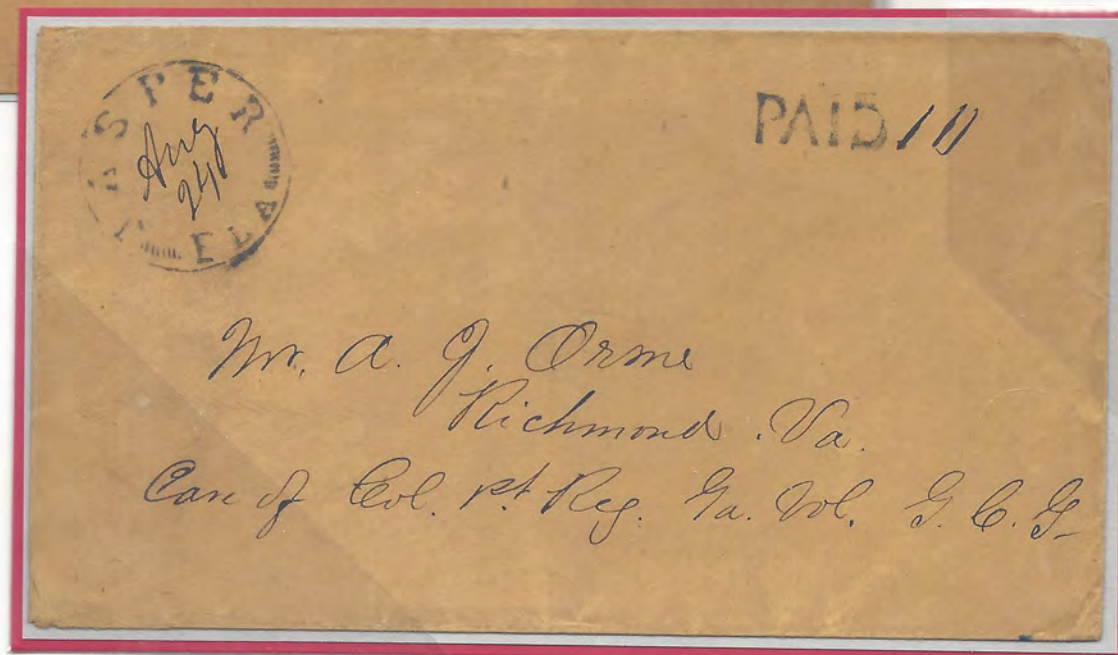 JASPER
Aug
24
FLA
PAID 10
Mr. A. J. Orme
Richmond. Va.
Care of Col. 1st Reg. Ga. Vol. G. C. G